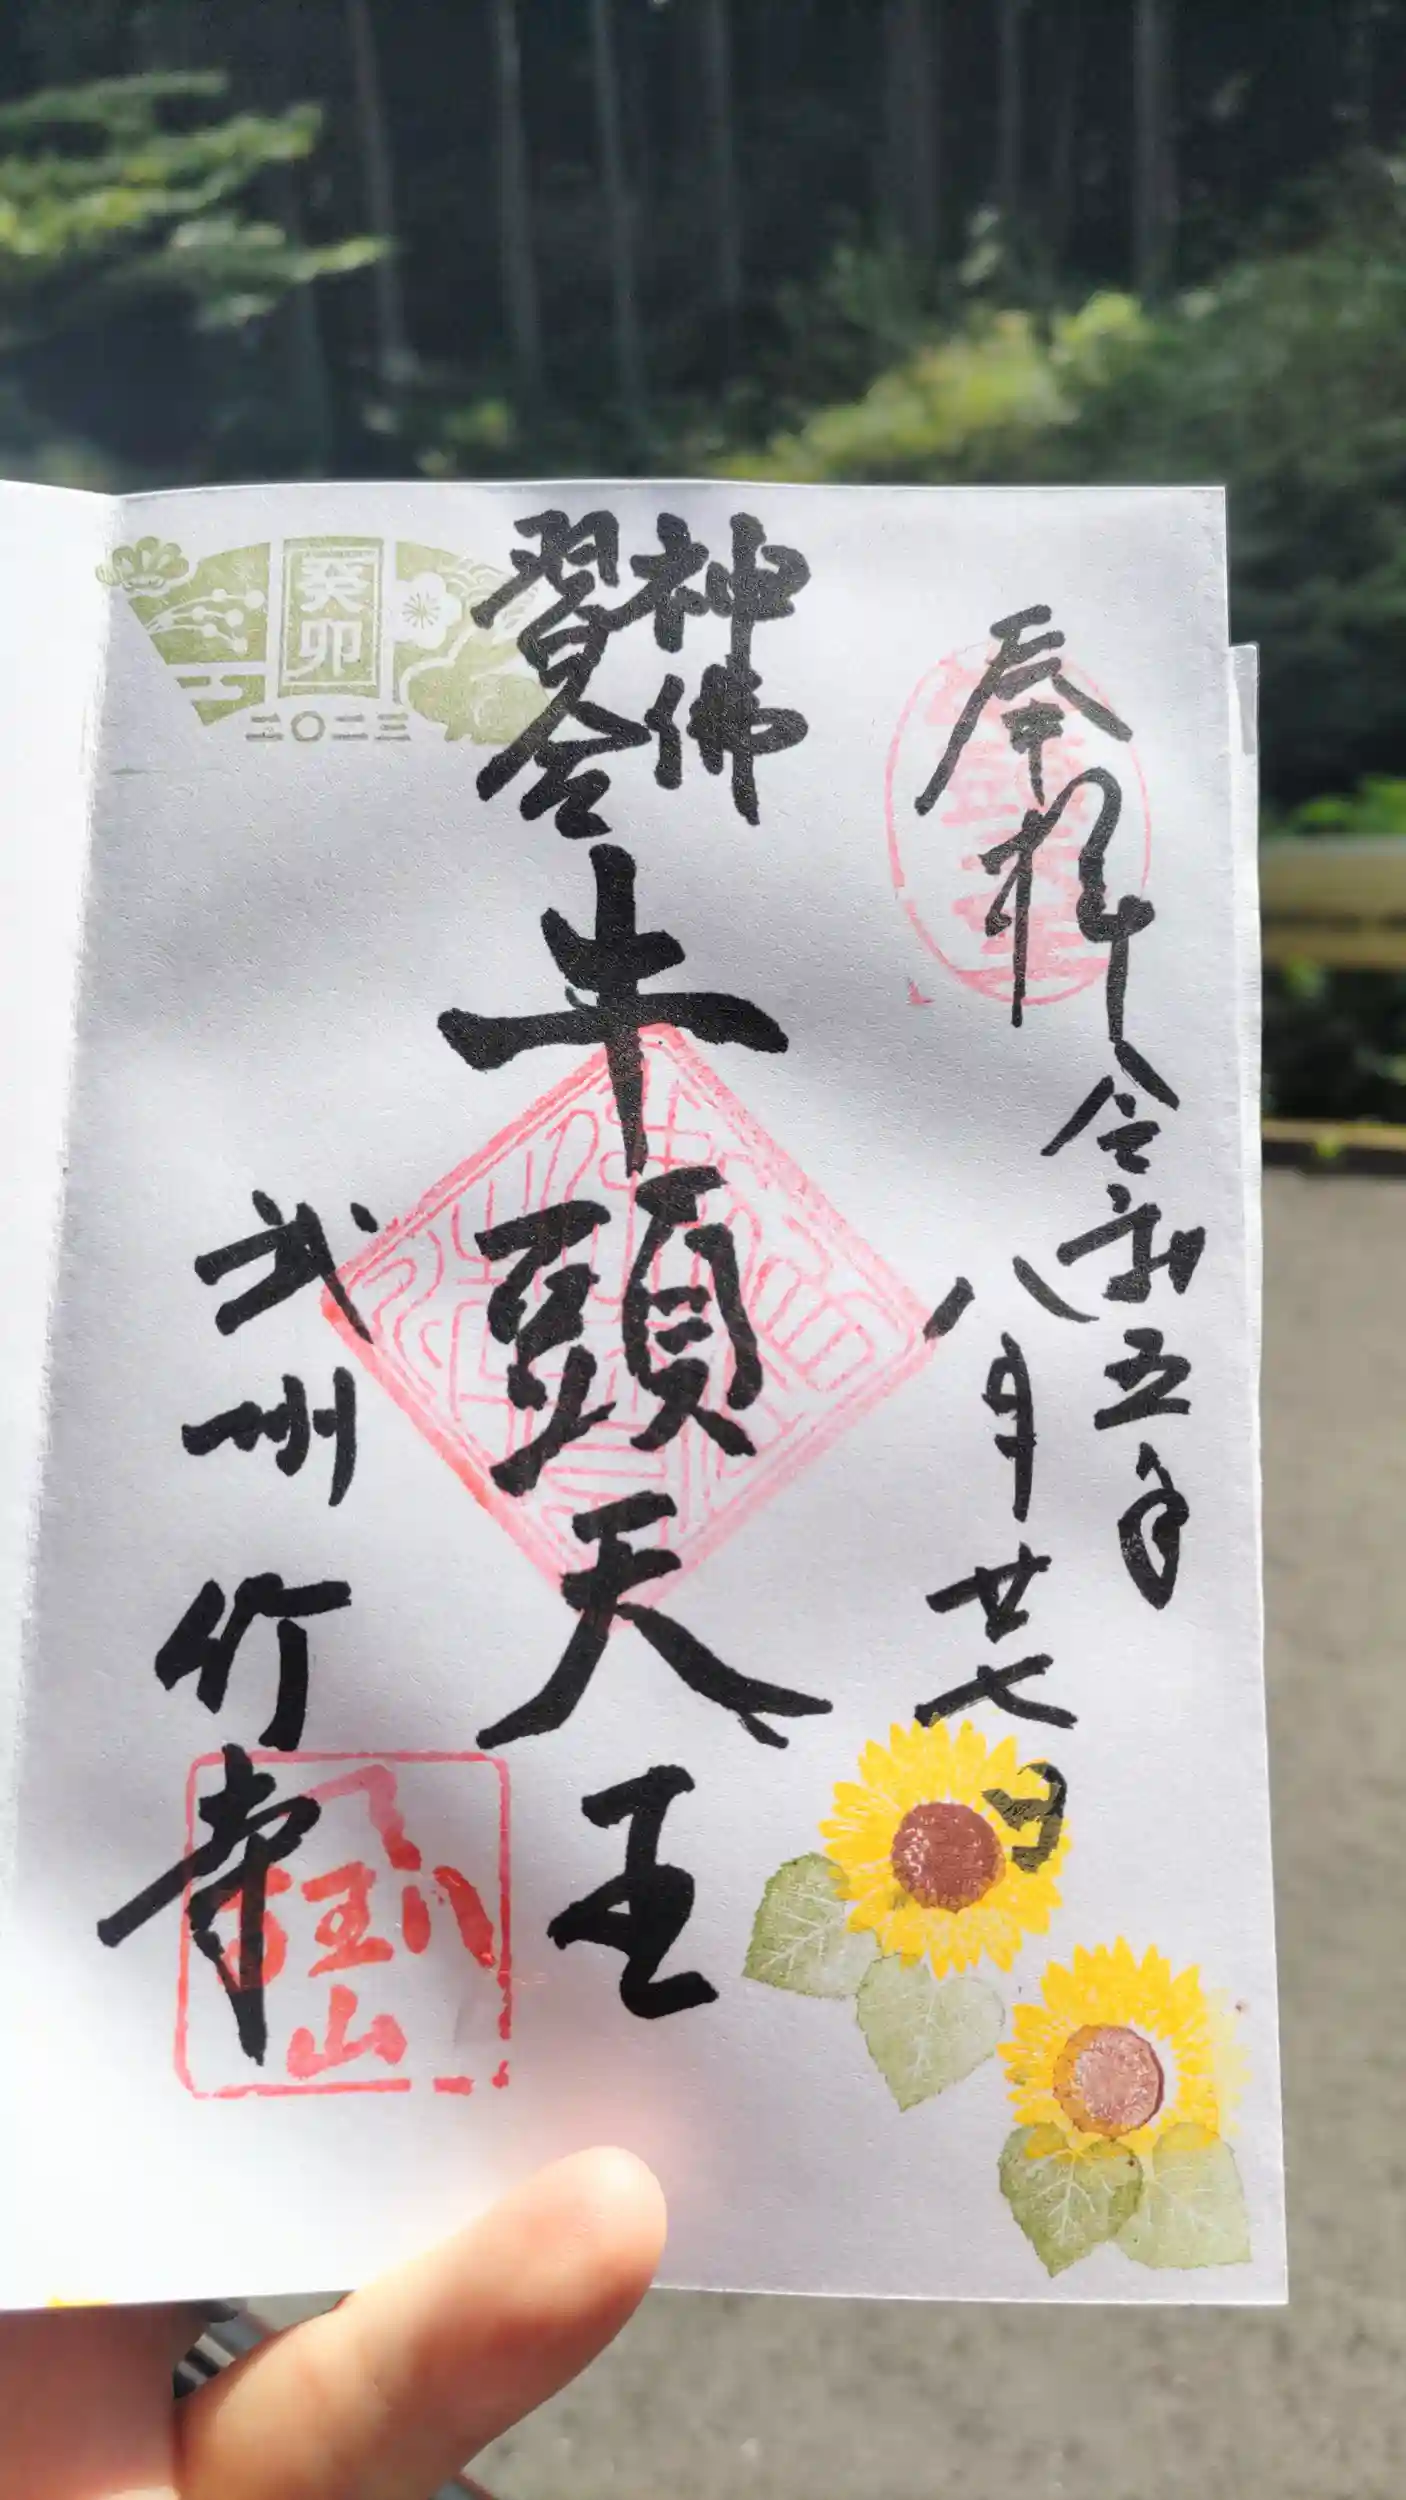 奉拝
令和五年
八月廿七日
神佛
習合
牛頭天王
武州
竹寺
癸卯
二〇二三
八王山